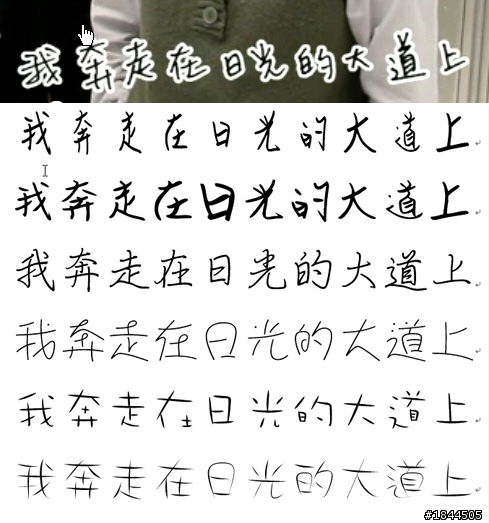 我奔走在日光的大道上
我奔走在日光的大道上
我奔走在日光的大道上
我奔走在日光的大道上
我奔走在日光的大道上
我奔走在日光的大道上
我奔走在日光的大道上
#1844505